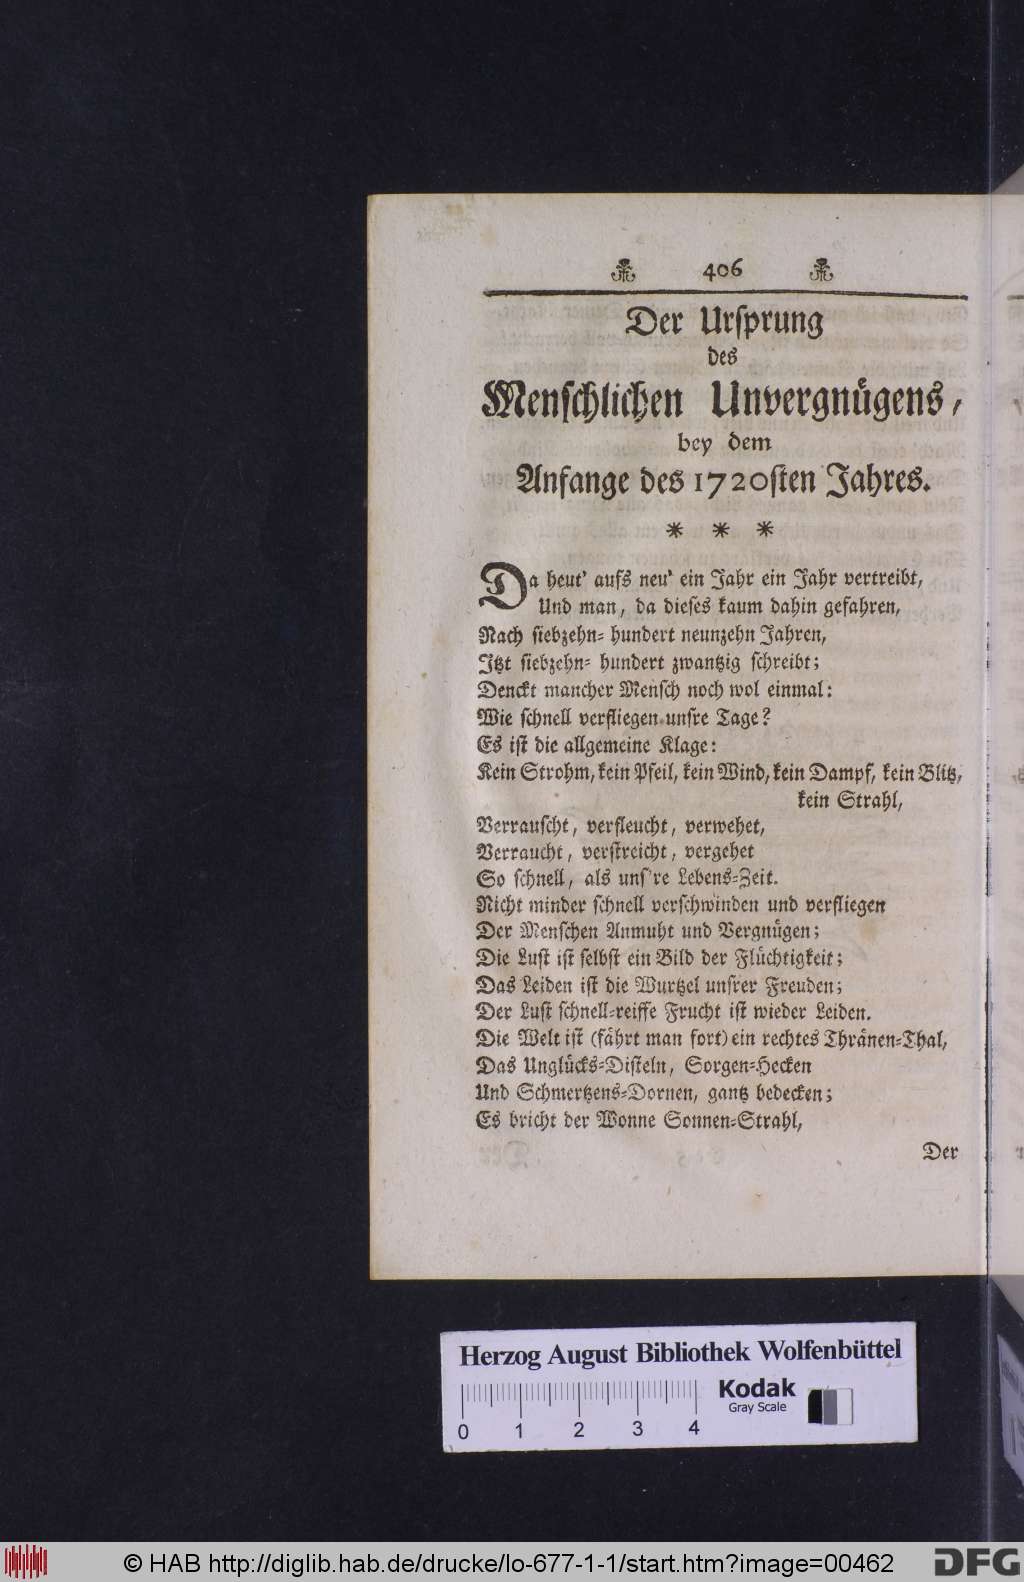 406
Der Ursprung
des
Menschlichen Unvergnügens,
bey dem
Anfange des 1720sten Jahres.
* * *
Da heut' aufs neu' ein Jahr ein Jahr vertreibt,
Und man, da dieses kaum dahin gefahren,
Nach siebzehn-hundert neunzehn Jahren,
Itzt siebzehn-hundert zwantzig schreibt;
Denckt mancher Mensch noch wol einmal:
Wie schnell verfliegen unsre Tage?
Es ist die allgemeine Klage:
Kein Strohm, kein Pfeil, kein Wind, kein Dampf, kein Blitz,
kein Strahl,
Verrauscht, verfleucht, verwehet,
Verraucht, verstreicht, vergehet
So schnell, als uns're Lebens-Zeit.
Nicht minder schnell verschwinden und verfliegen
Der Menschen Anmuht und Vergnügen;
Die Lust ist selbst ein Bild der Flüchtigkeit;
Das Leiden ist die Wurtzel unsrer Freuden;
Der Lust schnell-reiffe Frucht ist wieder Leiden.
Die Welt ist (fährt man fort) ein rechtes Thränen-Thal,
Das Unglücks-Disteln, Sorgen-Hecken
Und Schmertzens-Dornen, gantz bedecken;
Es bricht der Wonne Sonnen-Strahl,
Der
Herzog August Bibliothek Wolfenbüttel
Kodak
Gray Scale
0 1 2 3 4
© HAB http://diglib.hab.de/drucke/lo-677-1-1/start.htm?image=00462
DFG